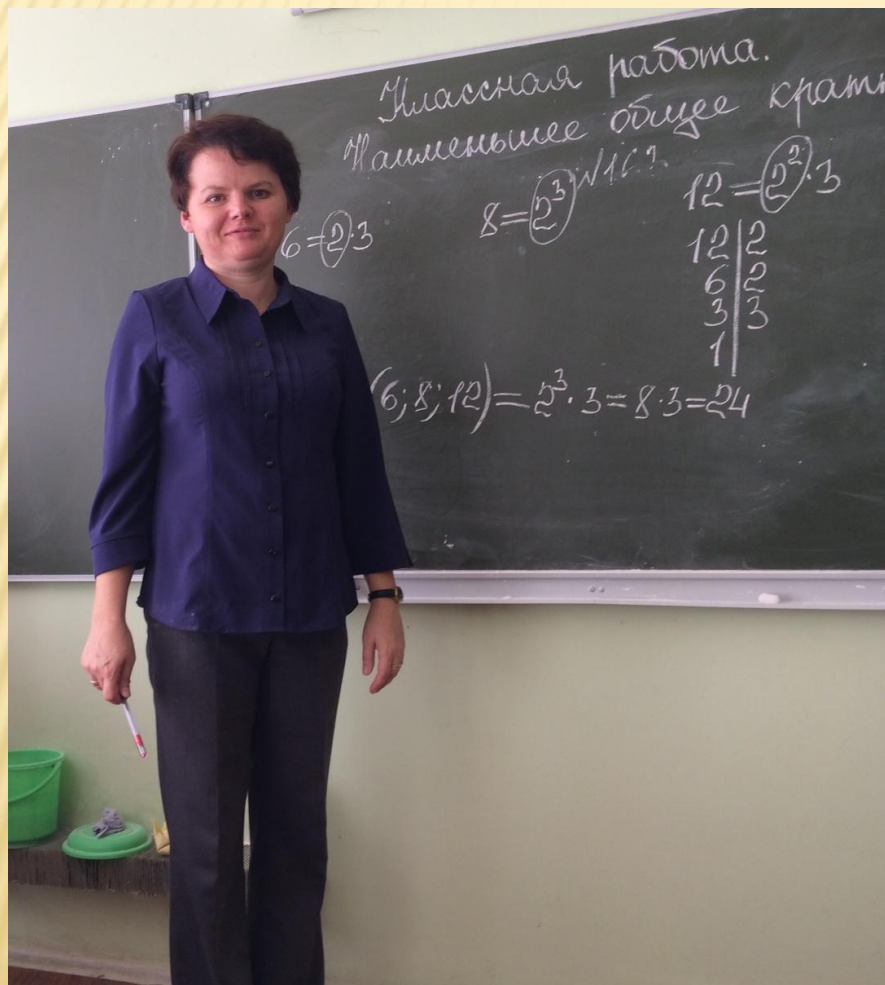 Классная работа.
Наименьшее общее
6=2·3 8=2³ 12=2²·3
12|2
6|2
3|3
1|
(6; 8; 12)=2³·3=8·3=24